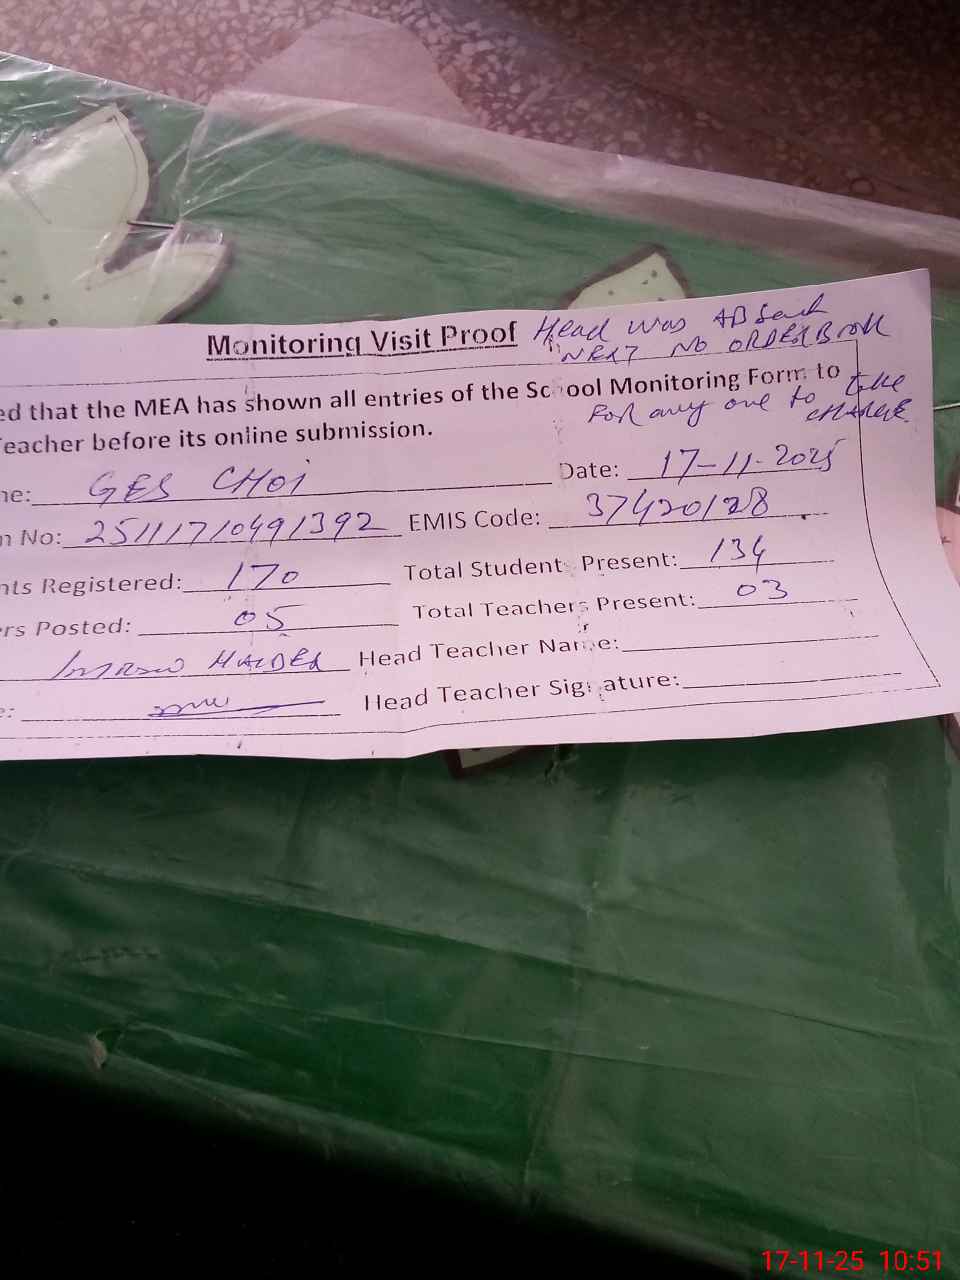 Monitoring Visit Proof Head was ABsent
NEXT NO ORDER Book
ed that the MEA has shown all entries of the School Monitoring Form to
For any one to take
Teacher before its online submission.
ne: GES CHOI Date: 17-11-2025
n No: 25111710491392 EMIS Code: 37420128
nts Registered: 170 Total Students Present: 134
rs Posted: 05 Total Teachers Present: 03
HAIDER Head Teacher Name:
e: Head Teacher Signature:
17-11-25 10:51